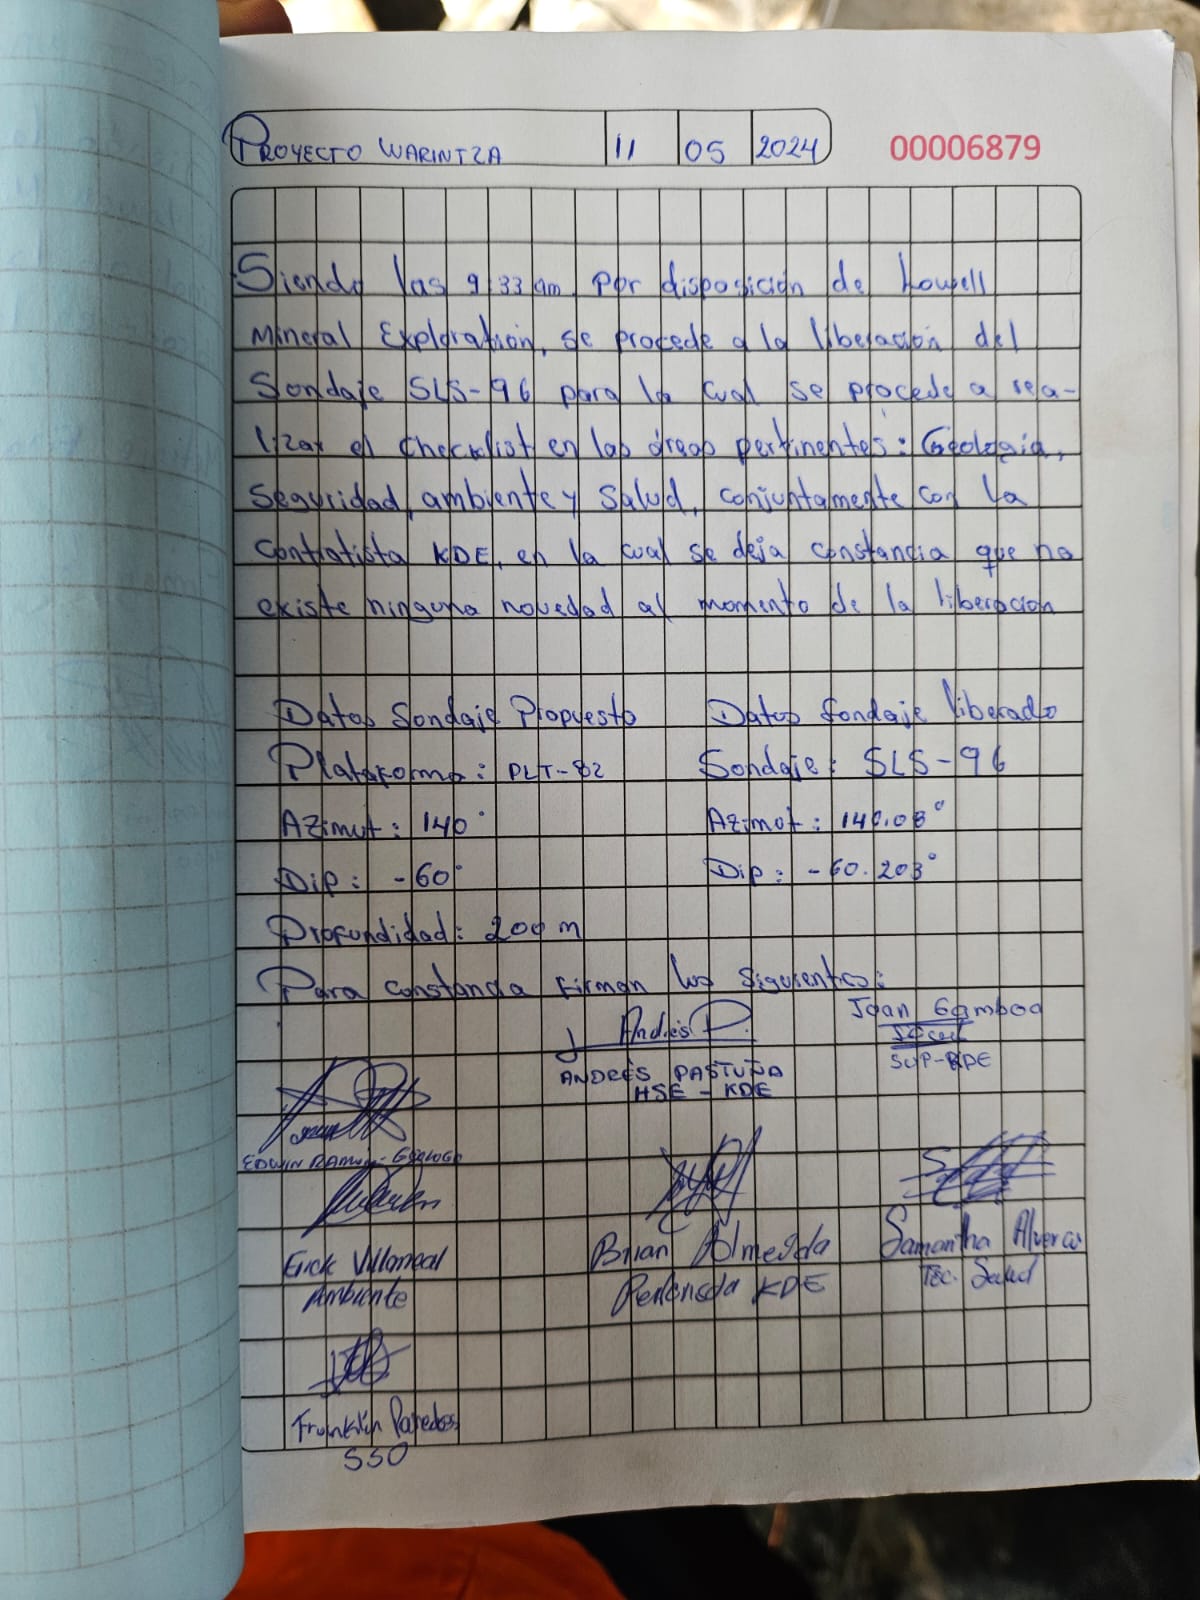 PROYECTO WARINTZA 11 05 2024 00006879
Siendo las 9:33 am por disposición de Lowell
Mineral Exploration, se procede a la liberación del
Sondaje SLS-96 para la cual se procede a rea-
lizar el checklist en las áreas pertinentes: Geología,
Seguridad, ambiente y Salud, conjuntamente con la
contratista KDE, en la cual se deja constancia que no
existe ninguna novedad al momento de la liberación
Datos Sondaje Propuesto Datos Sondaje liberado
Plataforma: PLT-82 Sondaje: SLS-96
Azimut: 140° Azimut: 140.08°
Dip: -60° Dip: -60.203°
Profundidad: 200 m
Para constancia firman los siguientes:
Andrés P. Joan Gamboa
ANDRÉS PASTUÑA SUP-KDE
HSE - KDE
EDWIN RAMON - GEOLOGO
Erick Villarreal Brian Almeida Samantha Alverca
Ambiente Perforista KDE Tec. Salud
Franklin Paredes
SSO